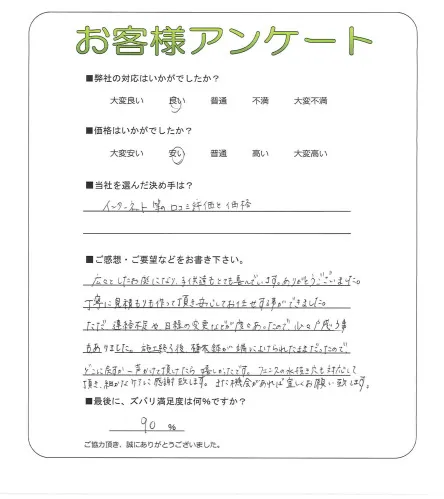 お客様アンケート
■弊社の対応はいかがでしたか?
大変良い 良い 普通 不満 大変不満
■価格はいかがでしたか?
大変安い 安い 普通 高い 大変高い
■当社を選んだ決め手は?
インターネット等の口コミ評価と価格
■ご感想・ご要望などをお書き下さい。
広々としたお庭になり、子供達もとても喜んでいます。ありがとうございました。
丁寧に見積もりも作って頂き安心してお任せする事ができました。
ただ、連絡不足や日程の変更などが度々あったので、心配に感じる事
もありました。施工終了後、植木鉢が横によけられたままだったので、
どこに戻すか一声かけて頂けたら嬉しかったです。フェンスの水抜き穴も対応して
頂き、細かなケアに感謝致します。また機会があれば宜しくお願い致します。
■最後に、ズバリ満足度は何%ですか?
90 %
ご協力頂き、誠にありがとうございました。